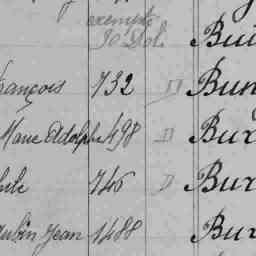 exempté
90 Dol. Bui
rançois 732 II Bun
Marie Adolphe 498 II Bux
hile 746 D Bur
ubin Jean 1488 Bur